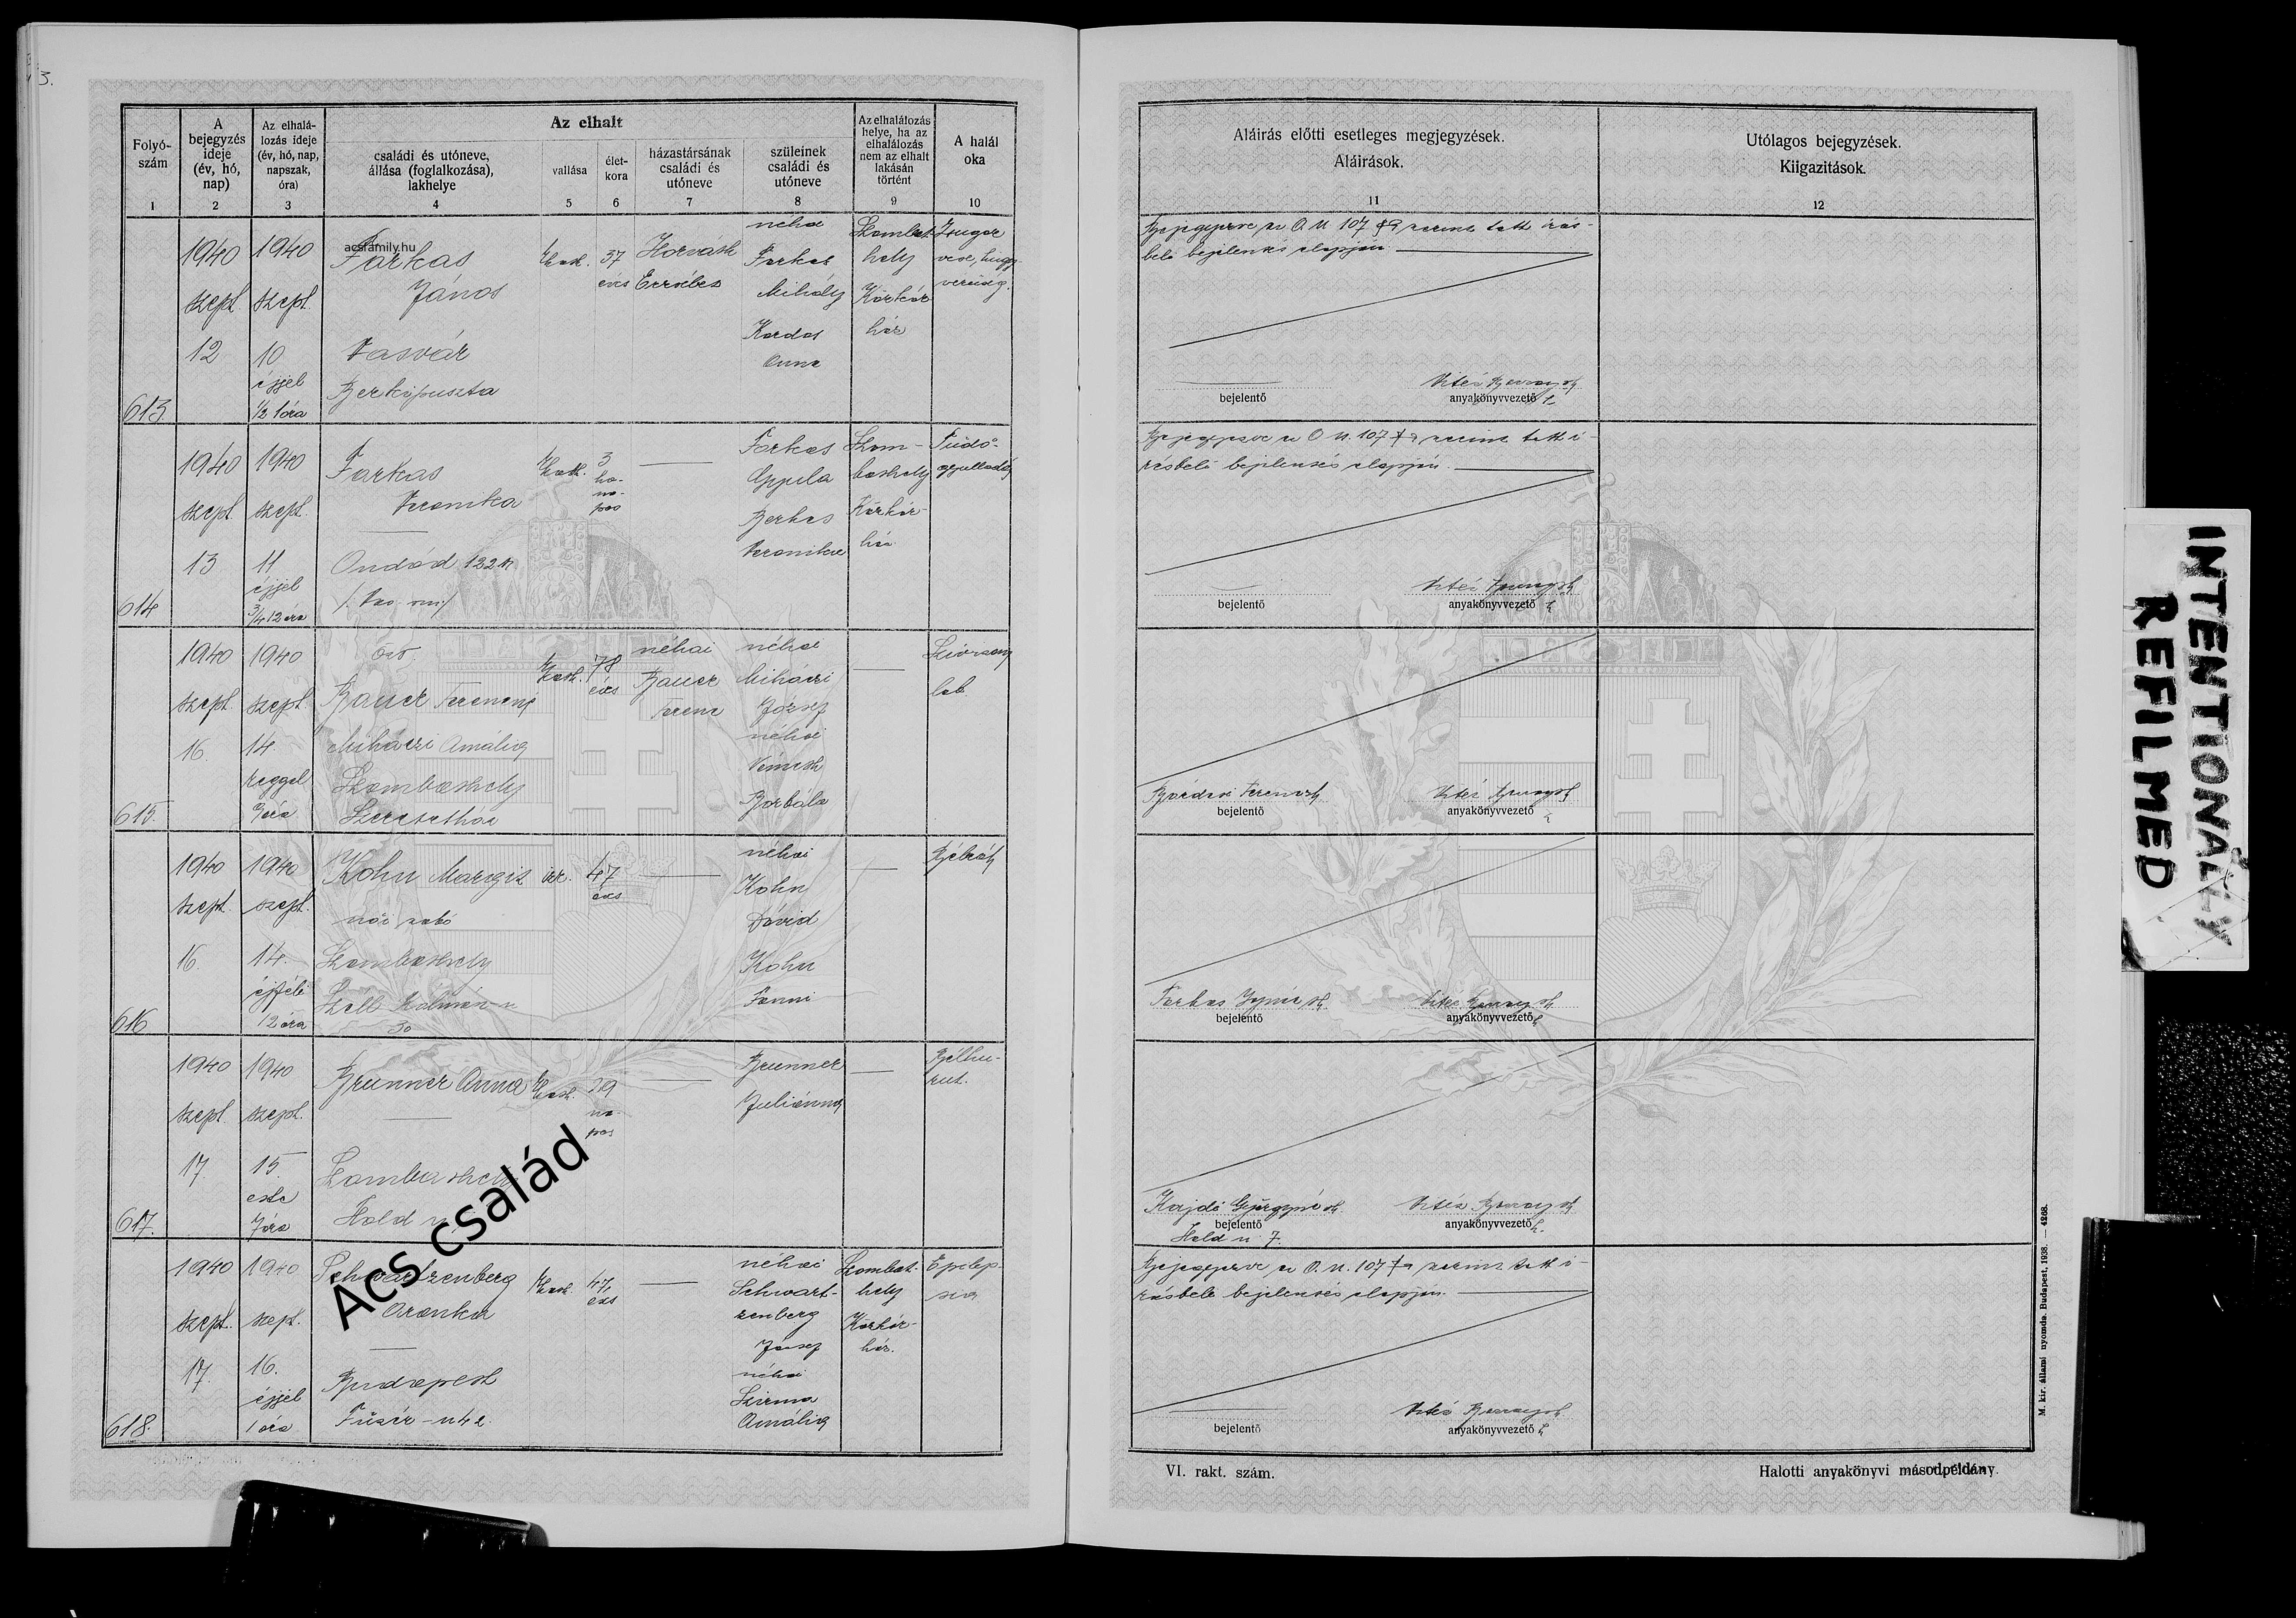 3.
Folyó-
szám
A
bejegyzés
ideje
(év, hó,
nap)
Az elhalá-
lozás ideje
(év, hó, nap,
napszak,
óra)
Az elhalt
családi és utóneve,
állása (foglalkozása),
lakhelye
vallása
élet-
kora
házastársának
családi és
utóneve
szüleinek
családi és
utóneve
Az elhalálozás
helye, ha az
elhalálozás
nem az elhalt
lakásán
történt
A halál
oka
1 2 3 4 5 6 7 8 9 10
acsfamily.hu
613.
1940
szept.
12
1940
szept.
10
éjjel
1/2 1 óra
Farkas
János
Vasvár
37
éves
Horváth
Erzsébet
néhai
Farkas
Mihály
Kardos
Anna
Szombat-
hely
Kórház
614
1940
szept.
13
1940
szept.
11
éjjel
3/4 12 óra
Farkas
Veronika
Ondód 122
3
hó-
na-
pos
Farkas
Gyula
Berkes
Veronika
Szom-
bathely
Kórház
Tüdő-
gyulladás
615.
1940
szept.
16.
1940
szept.
14.
reggel
özv.
Bauer Ferencné
Amália
Szombathely
78
éves
néhai
Bauer
Ferenc
néhai
József
néhai
Németh
Borbála
616
1940
szept.
16.
1940
szept.
14.
éjféli
12 óra
Kohn Margit
női szabó
Szombathely
Széll Kálmán u
30
izr.
47
éves
néhai
Kohn
Dávid
Kohn
Fanni
Bélrák
617.
1940
szept.
17.
1940
szept.
15.
este
7 óra
Brunner Anna
Szombathely
Hold u
29
na-
pos
Brunner
Julianna
Bélhu-
rut.
618.
1940
szept.
17.
1940
szept.
16.
éjjel
1 óra
Schwartzenberg
Aranka
Budapest
Füzér-u 42.
47
éves
néhai
Schwart-
zenberg
József
néhai
Amália
Szombat-
hely
Kórház.
Epilep-
sia
Acs család
Aláirás előtti esetleges megjegyzések.
Aláirások.
11
Utólagos bejegyzések.
Kiigazitások.
12
Bejegyezve az O.U. 107 §a szerint tett irás-
beli bejelentés alapján.
bejelentő
anyakönyvvezető
Bejegyezve az O.U. 107 §a szerint tett i-
rásbeli bejelentés alapján.
bejelentő
anyakönyvvezető
bejelentő
anyakönyvvezető
bejelentő
anyakönyvvezető
Kajdi Györgyné
bejelentő
anyakönyvvezető
Hold u 7.
Bejegyezve az O.U. 107 §a szerint tett i-
rásbeli bejelentés alapján.
bejelentő
anyakönyvvezető
VI. rakt. szám.
Halotti anyakönyvi másodpéldány.
M. kir. állami nyomda. Budapest, 1938. — 4268.
INTENTIONALLY
REFILMED